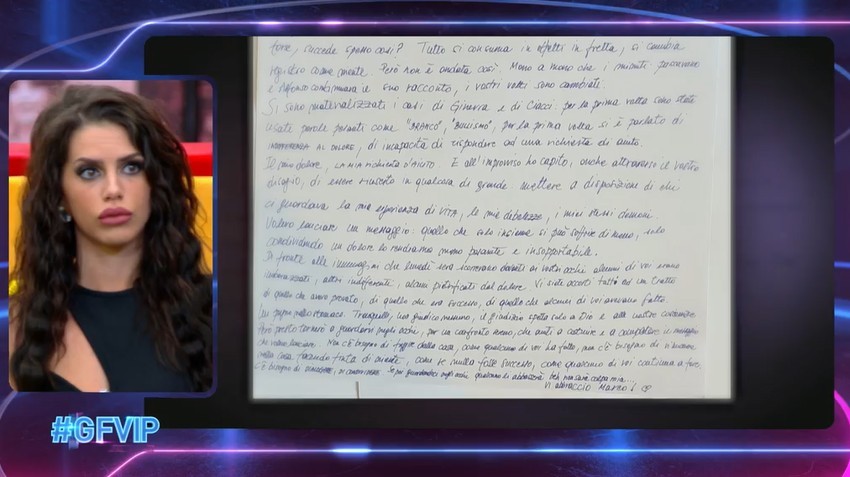 forse, succede spesso così? Tutto si consuma in effetti in fretta, si cambia
registro come niente. Però non è andata così. Mano a mano che i minuti passavano
e Alfonso continuava il suo racconto, i vostri volti sono cambiati.
Si sono materializzati i casi di Ginevra e di Ciacci: per la prima volta sono state
usate parole pesanti come "BRANCO", "BULLISMO", per la prima volta si è parlato di
INDIFFERENZA AL DOLORE, di incapacità di rispondere ad una richiesta di aiuto.
Il mio dolore, LA MIA RICHIESTA D'AIUTO. E all'improvviso ho capito, anche attraverso il vostro
disagio, di essere riuscito in qualcosa di grande: mettere a disposizione di chi
ci guardava la mia esperienza di VITA, le mie debolezze, i miei stessi demoni.
Volevo lanciare un messaggio: quello che solo insieme si può soffrire di meno, solo
condividendo un dolore lo rendiamo meno pesante e insopportabile.
Di fronte alle immagini che lunedì sera scorrevano davanti ai vostri occhi alcuni di voi erano
imbarazzati, altri indifferenti, alcuni pietrificati dal dolore. Vi siete accorti tutto ad un tratto
di quello che avevo provato, di quello che era successo, di quello che alcuni di voi avevano fatto.
Tranquilli, non giudico nessuno, il giudizio spetta solo a Dio e alla nostra coscienza.
Però presto tornerò a guardarvi negli occhi, per un confronto sereno, che aiuti a costruire e a completare il messaggio
che volevo lanciare. Non c'è bisogno di fuggire dalla casa, come qualcuno di voi ha fatto, non c'è bisogno di rimanere
nella casa facendo finta di niente, come se nulla fosse successo, come qualcuno di voi continua a fare.
C'è bisogno di
Vi abbraccio Marco!
#GFVIP